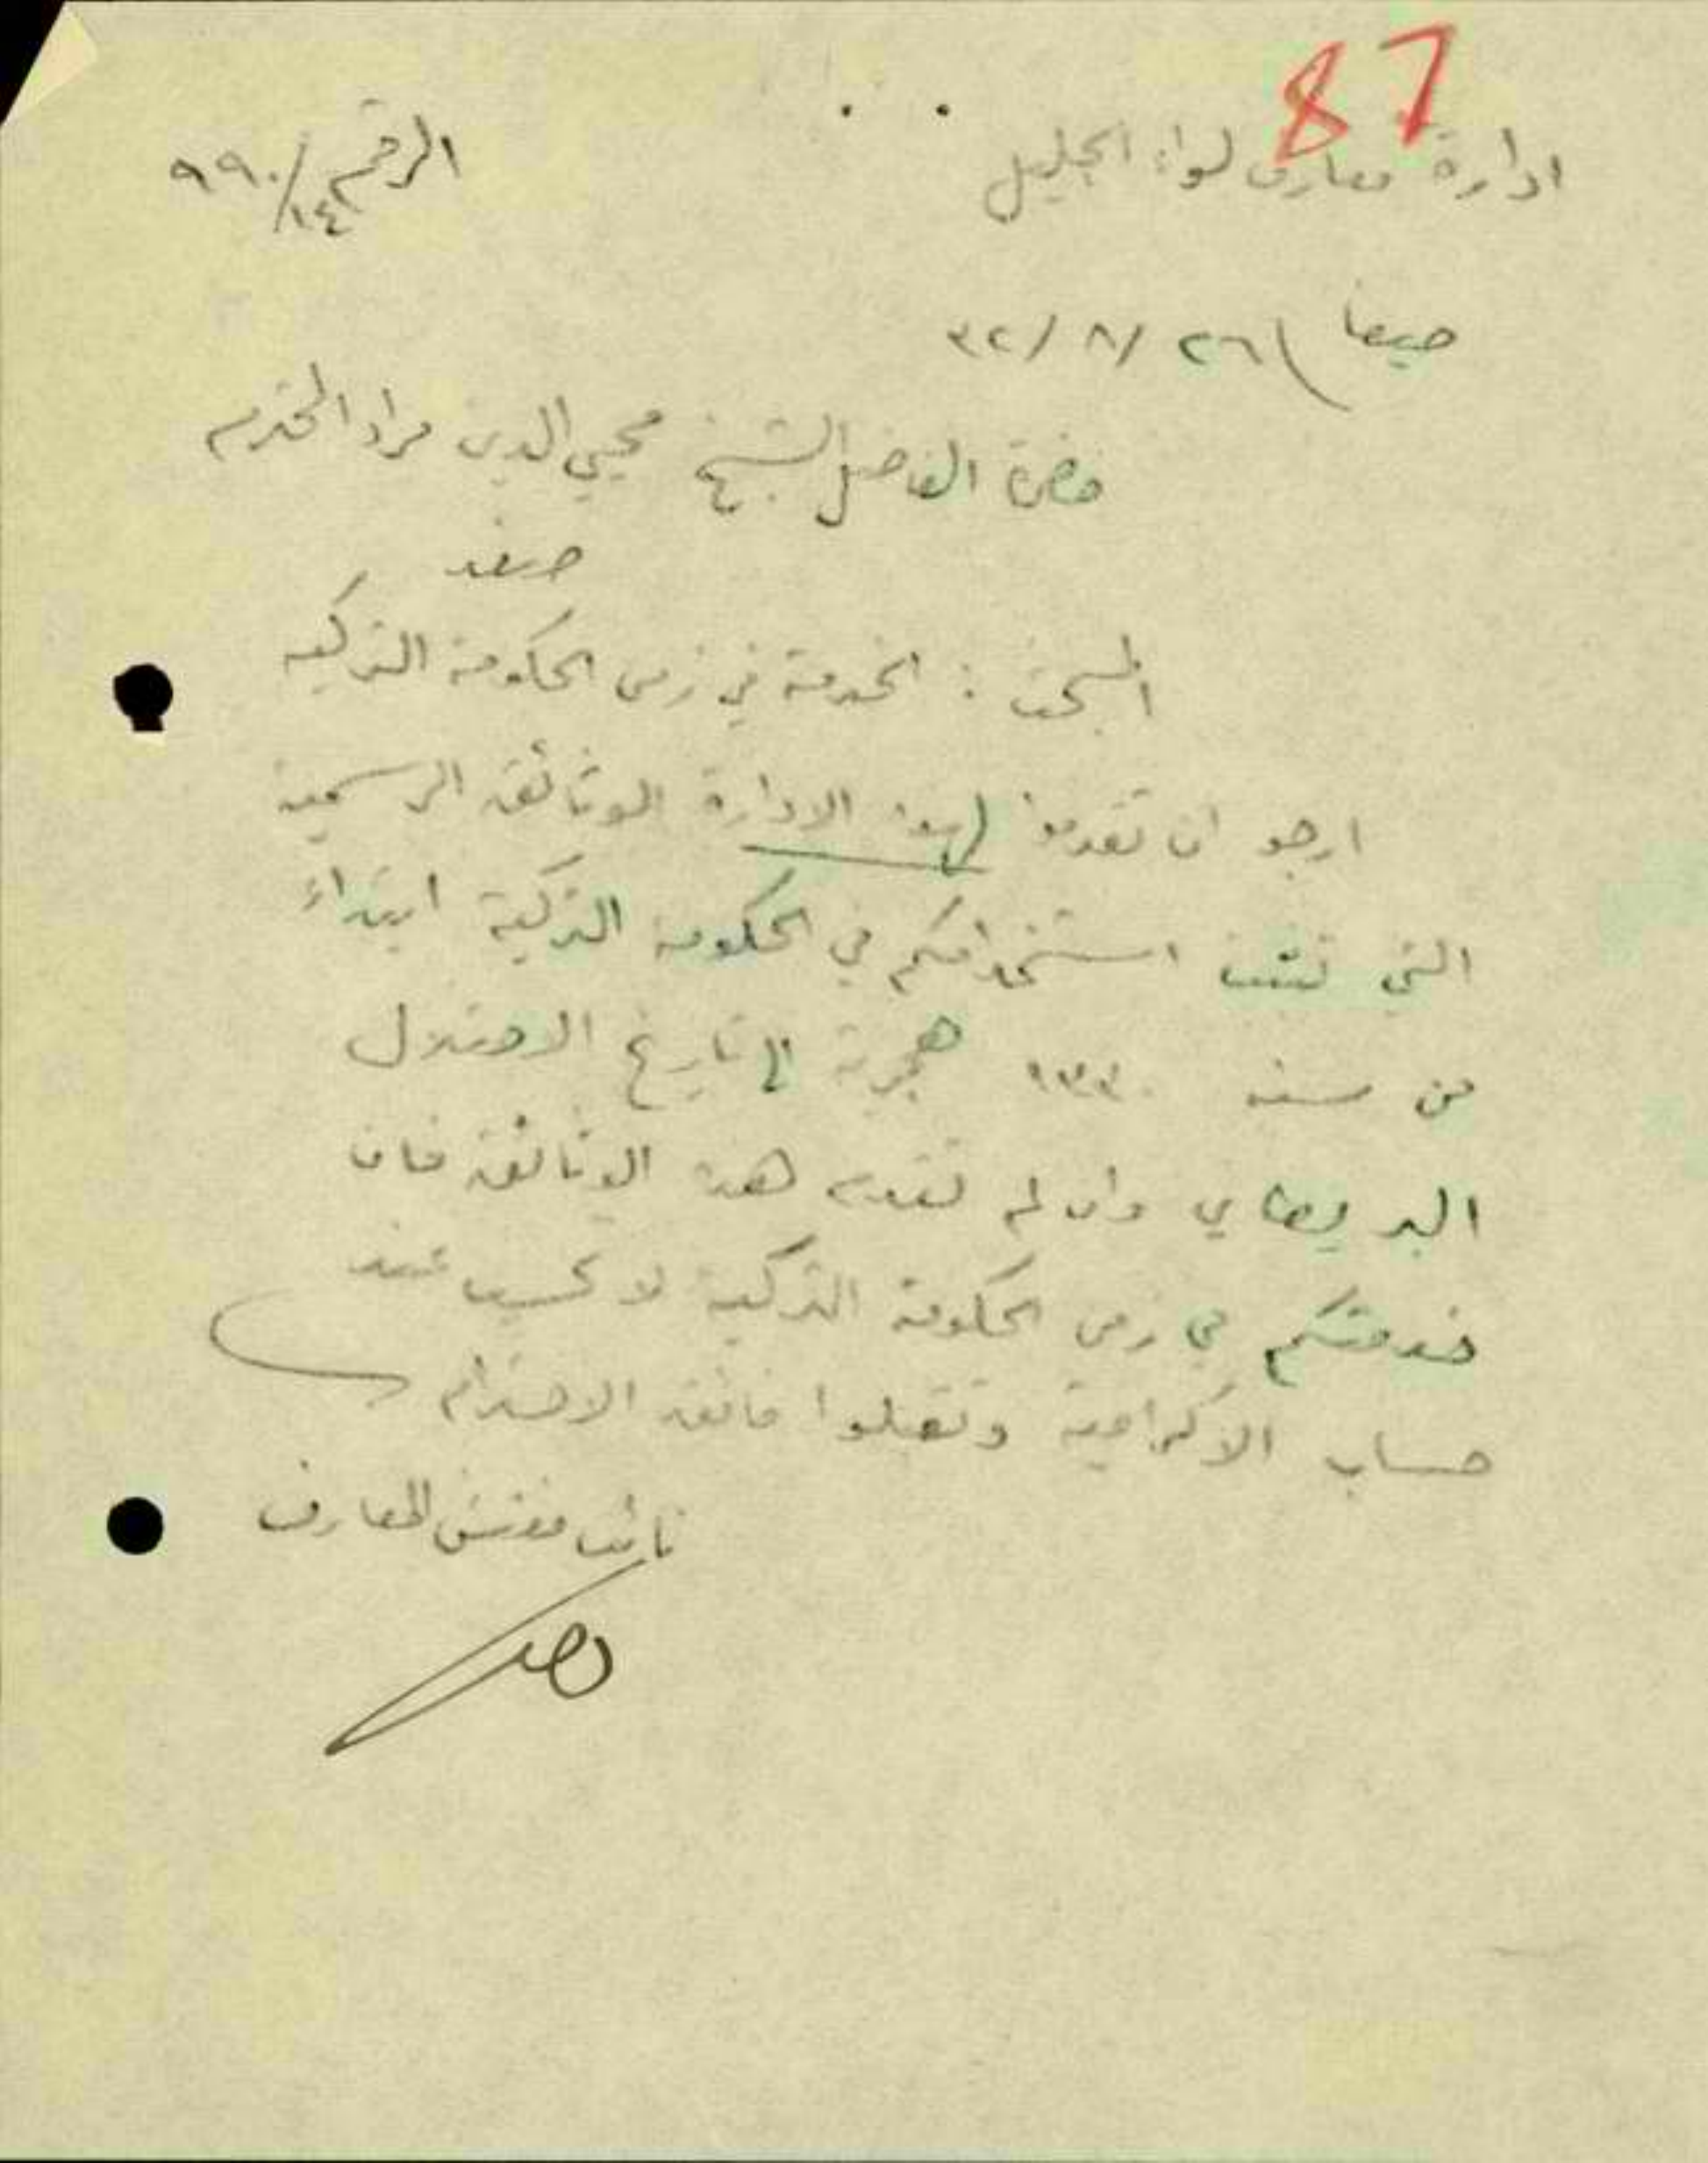 87
ادارة معارف لواء الجليل
الرقم ١٤/٩٩٠
حيفا ٢٦/٨/٣٢
حضرة الفاضل الشيخ محيي الدين مراد المحترم
صفد
المبحث : الخدمة في زمن الحكومة التركية
ارجو ان تقدموا لهذه الادارة الوثائق الرسمية
التي تثبت استخدامكم في الحكومة التركية ابتداء
من سنة ١٣٣٠ هجرية الى تاريخ الاحتلال
البريطاني وان لم تقدم هذه الوثائق فان
خدمتكم في زمن الحكومة التركية لا تحسب عند
حساب الاكرامية وتقبلوا فائق الاحترام
نائب مفتش المعارف